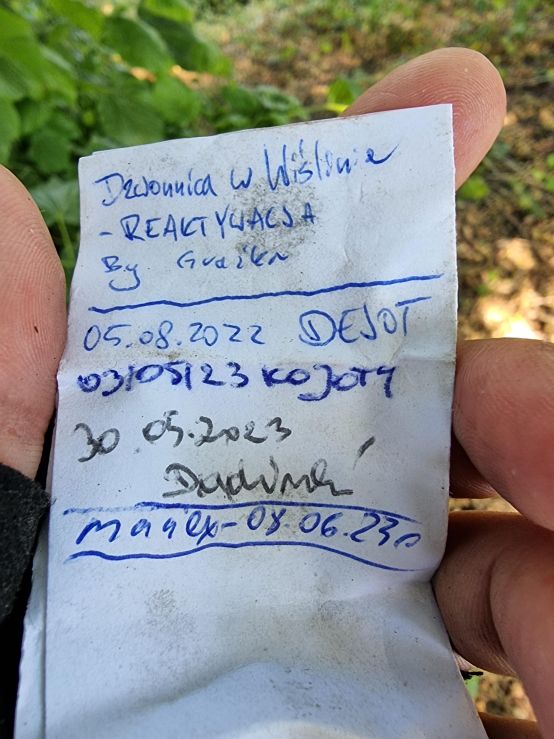 Dzwonnica w Wiślinie
- REAKTYWACJA
By
05.08.2022 DEJOT
03/05/23 KOJOTY
30.05.2023
- 08.06.23r